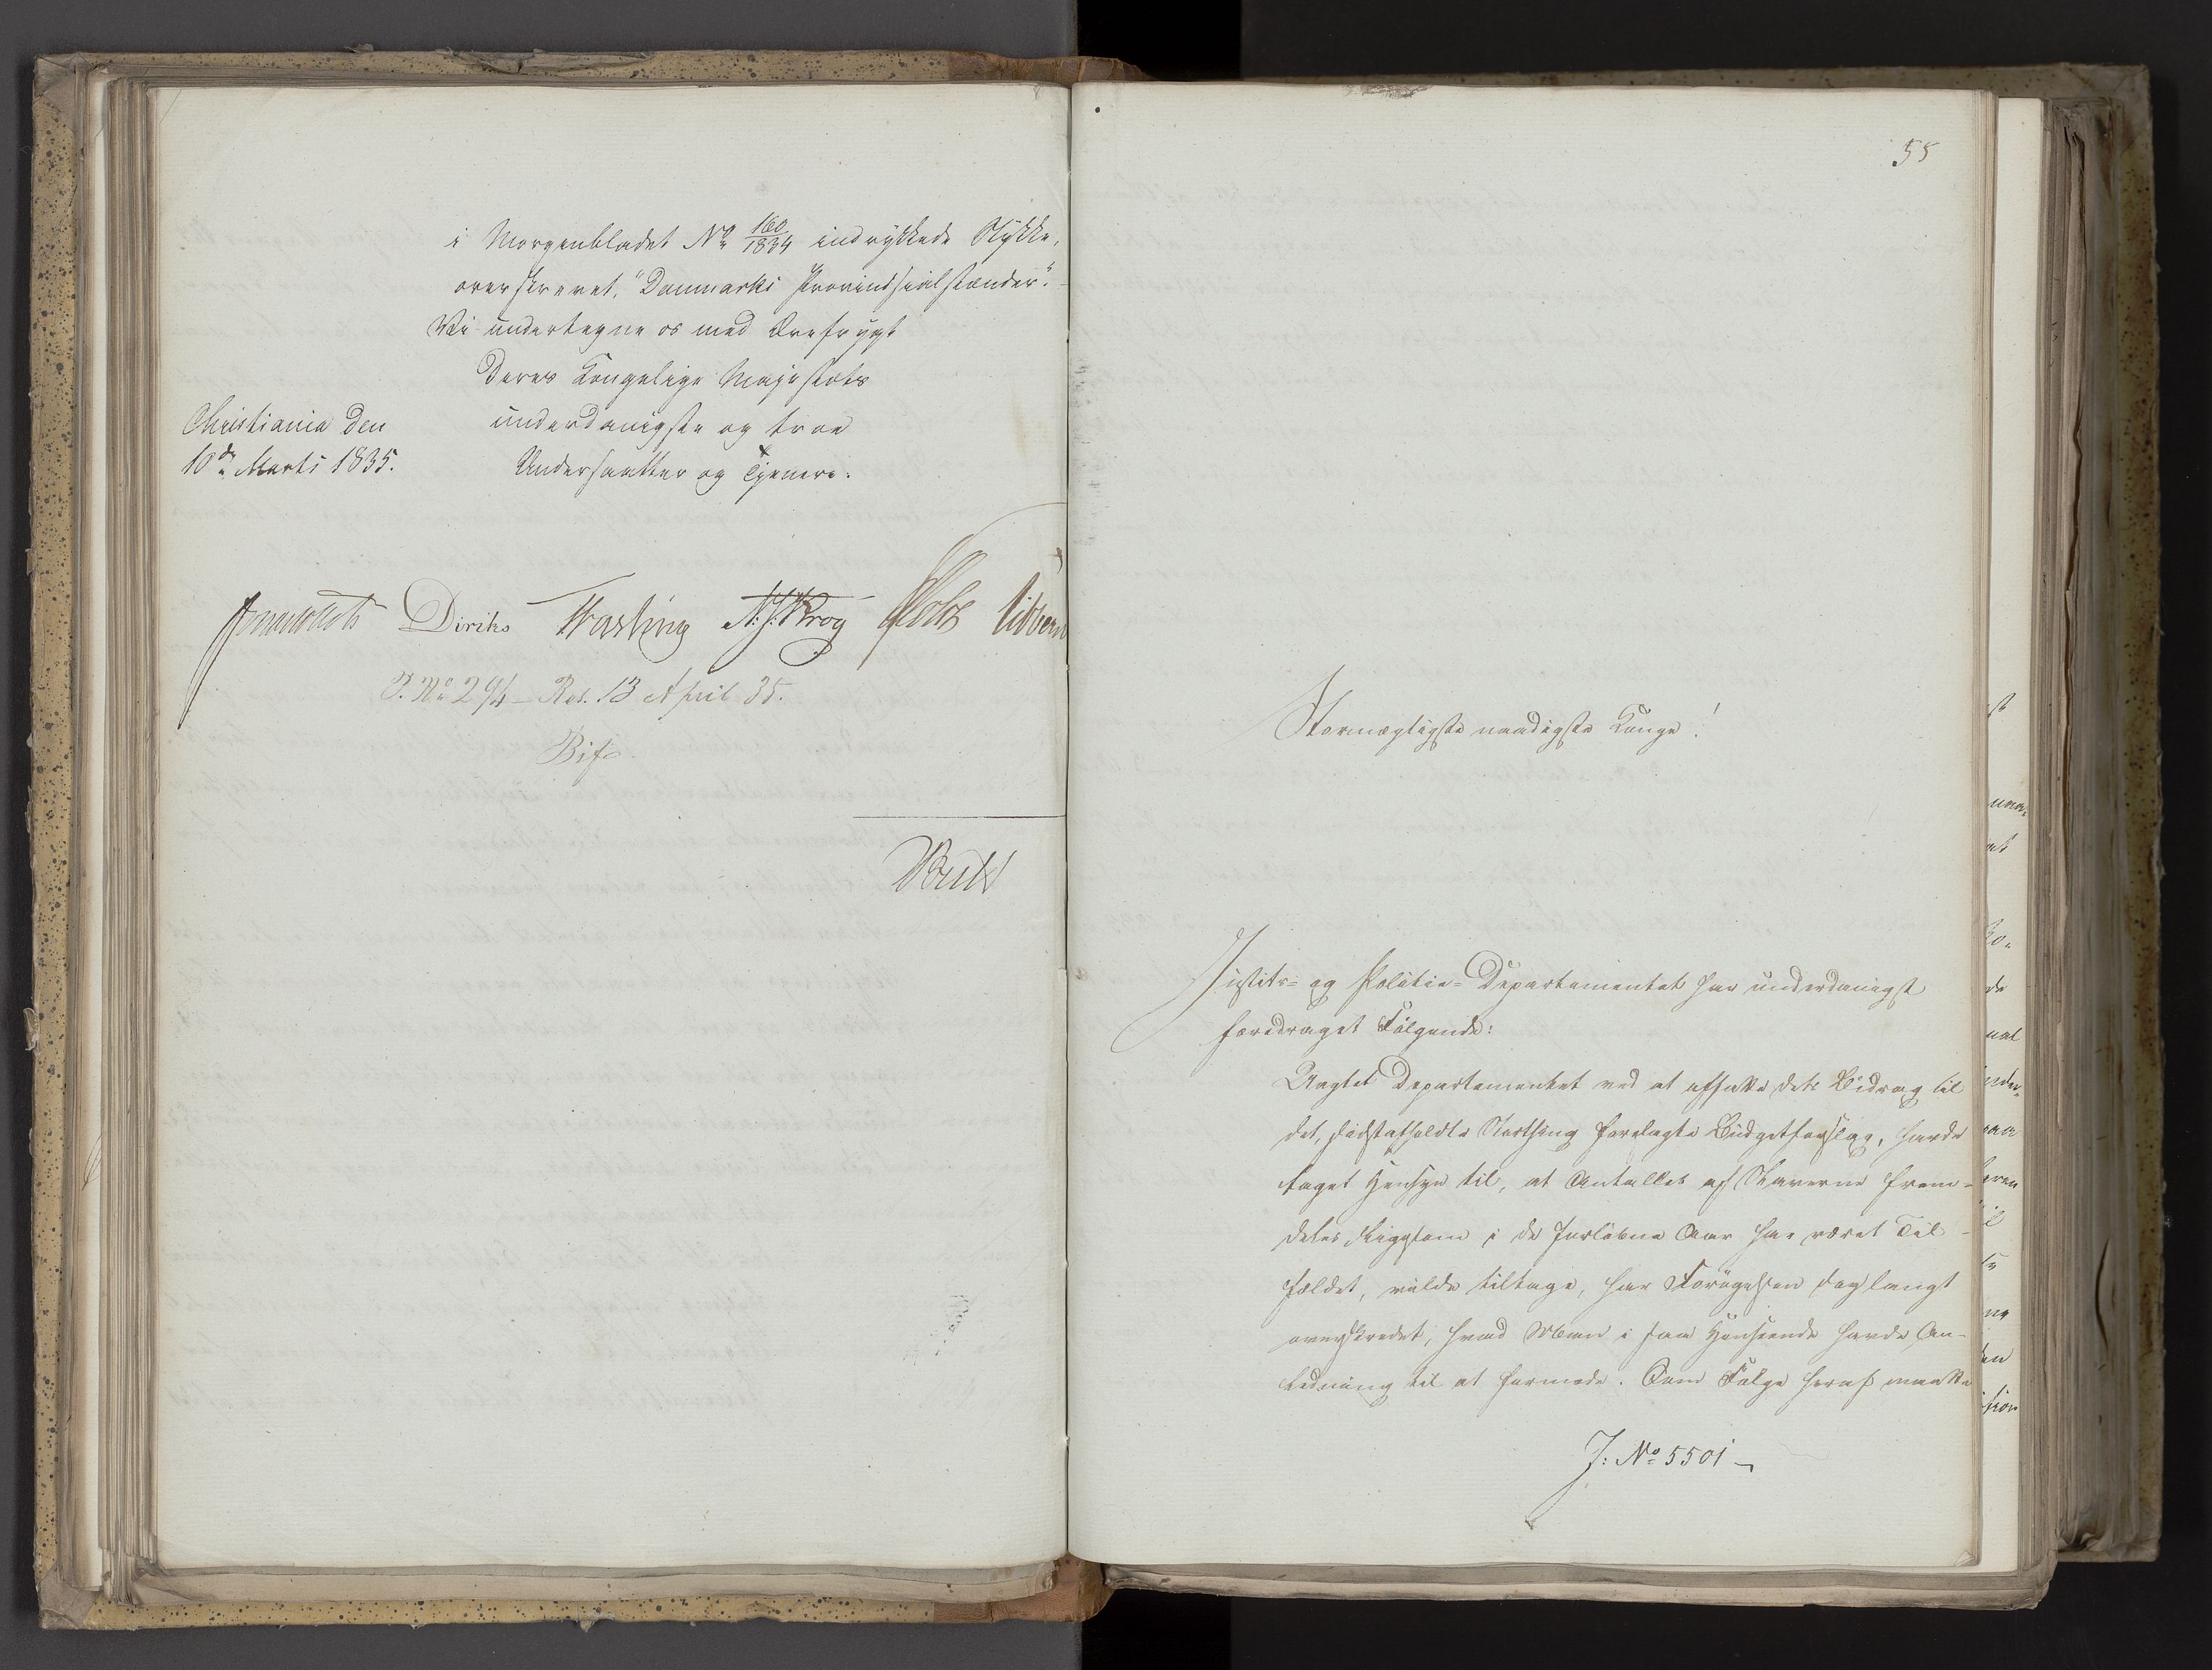 i Morgenbladet No 160/1834 indrykkede Stykke,
overskrevet, "Danmarks Provindsialstænder."
Vi undertegne os med Ærefrygt
Deres Kongelige Majestæts
underdanigste og troe
Undersaatter og Tjenere.
Christiania den
10de Marts 1835.
Diriks Fasting N. J. Krog Holst Sibbern
P. No 294 - Res. 13 April 35.
Bif.
55
Stormægtigste naadigste Konge!
Justits- og Politie-Departementet har underdanigst
foredraget Følgende:
Uagtet Departementet ved at affatte dets Bidrag til
det, sidstafholdte Storthing forelagte Budgetforslag, havde
taget Hensyn til, at Antallet af Slaverne frem-
deles, ligesom i de forløbne Aar har været Til-
fældet, vilde tiltage, har Forøgelsen dog langt
overskredet, hvad Man i saa Henseende havde An-
ledning til at formode. Som Følge heraf maatte
J: No 5501